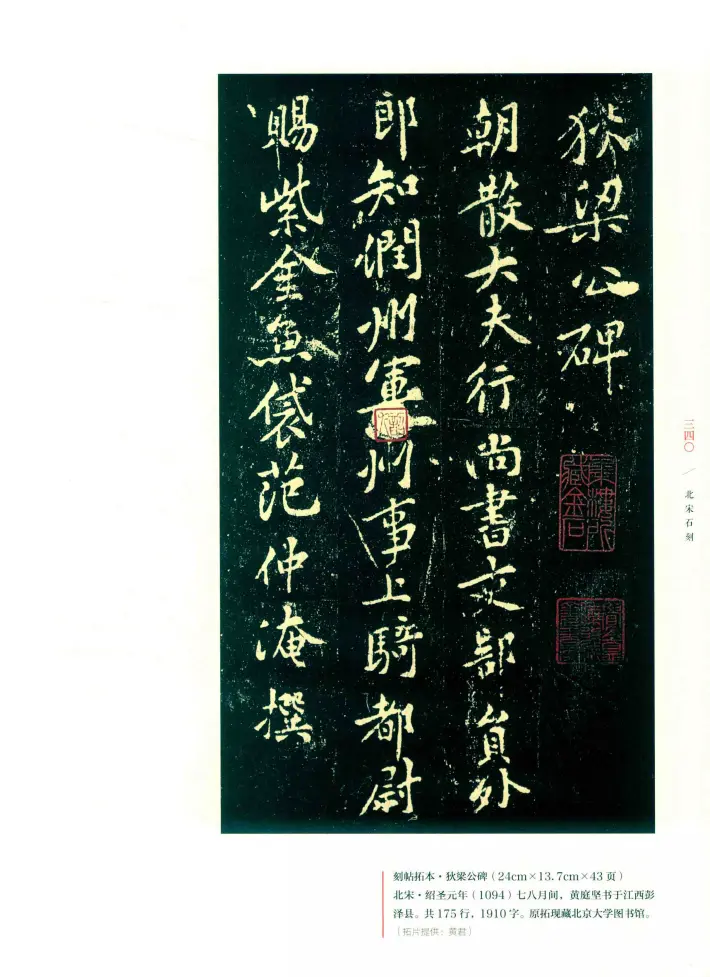 狄梁公碑
朝散大夫行尚書文部員外
郎知潤州軍州事上騎都尉
賜紫金魚袋范仲淹撰
三四〇 / 北宋石刻
刻帖拓本·狄梁公碑（24cm×13.7cm×43页）
北宋·绍圣元年（1094）七八月间，黄庭坚书于江西彭
泽县。共175行，1910字。原拓现藏北京大学图书馆。
［拓片提供：黄君］